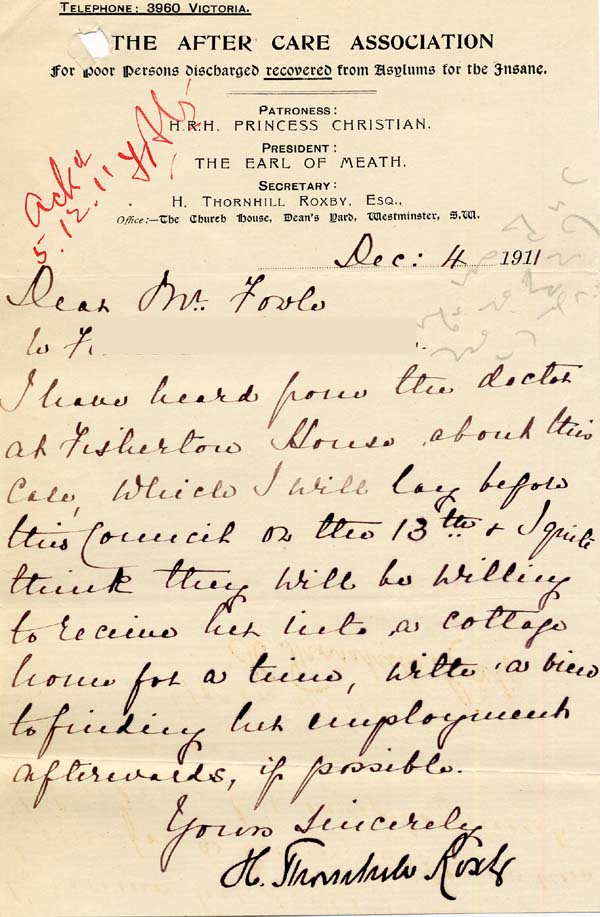 TELEPHONE: 3960 VICTORIA.
THE AFTER CARE ASSOCIATION
For Poor Persons discharged recovered from Asylums for the Insane.
PATRONESS:
H.R.H. PRINCESS CHRISTIAN.
PRESIDENT:
THE EARL OF MEATH.
SECRETARY:
H. THORNHILL ROXBY, ESQ.,
Office:—The Church House, Dean's Yard, Westminster, S.W.
Ackd
5.12.11
Dec: 4 1911
Dear Mr. Fowle
I have heard from the doctor
at Fisherton House about this
case, which I will lay before
this Council on the 13th & I quite
think they will be willing
to receive her into a cottage
home for a time, with a view
to finding her employment
afterwards, if possible.
Yours sincerely
H. Thornhill Roxby